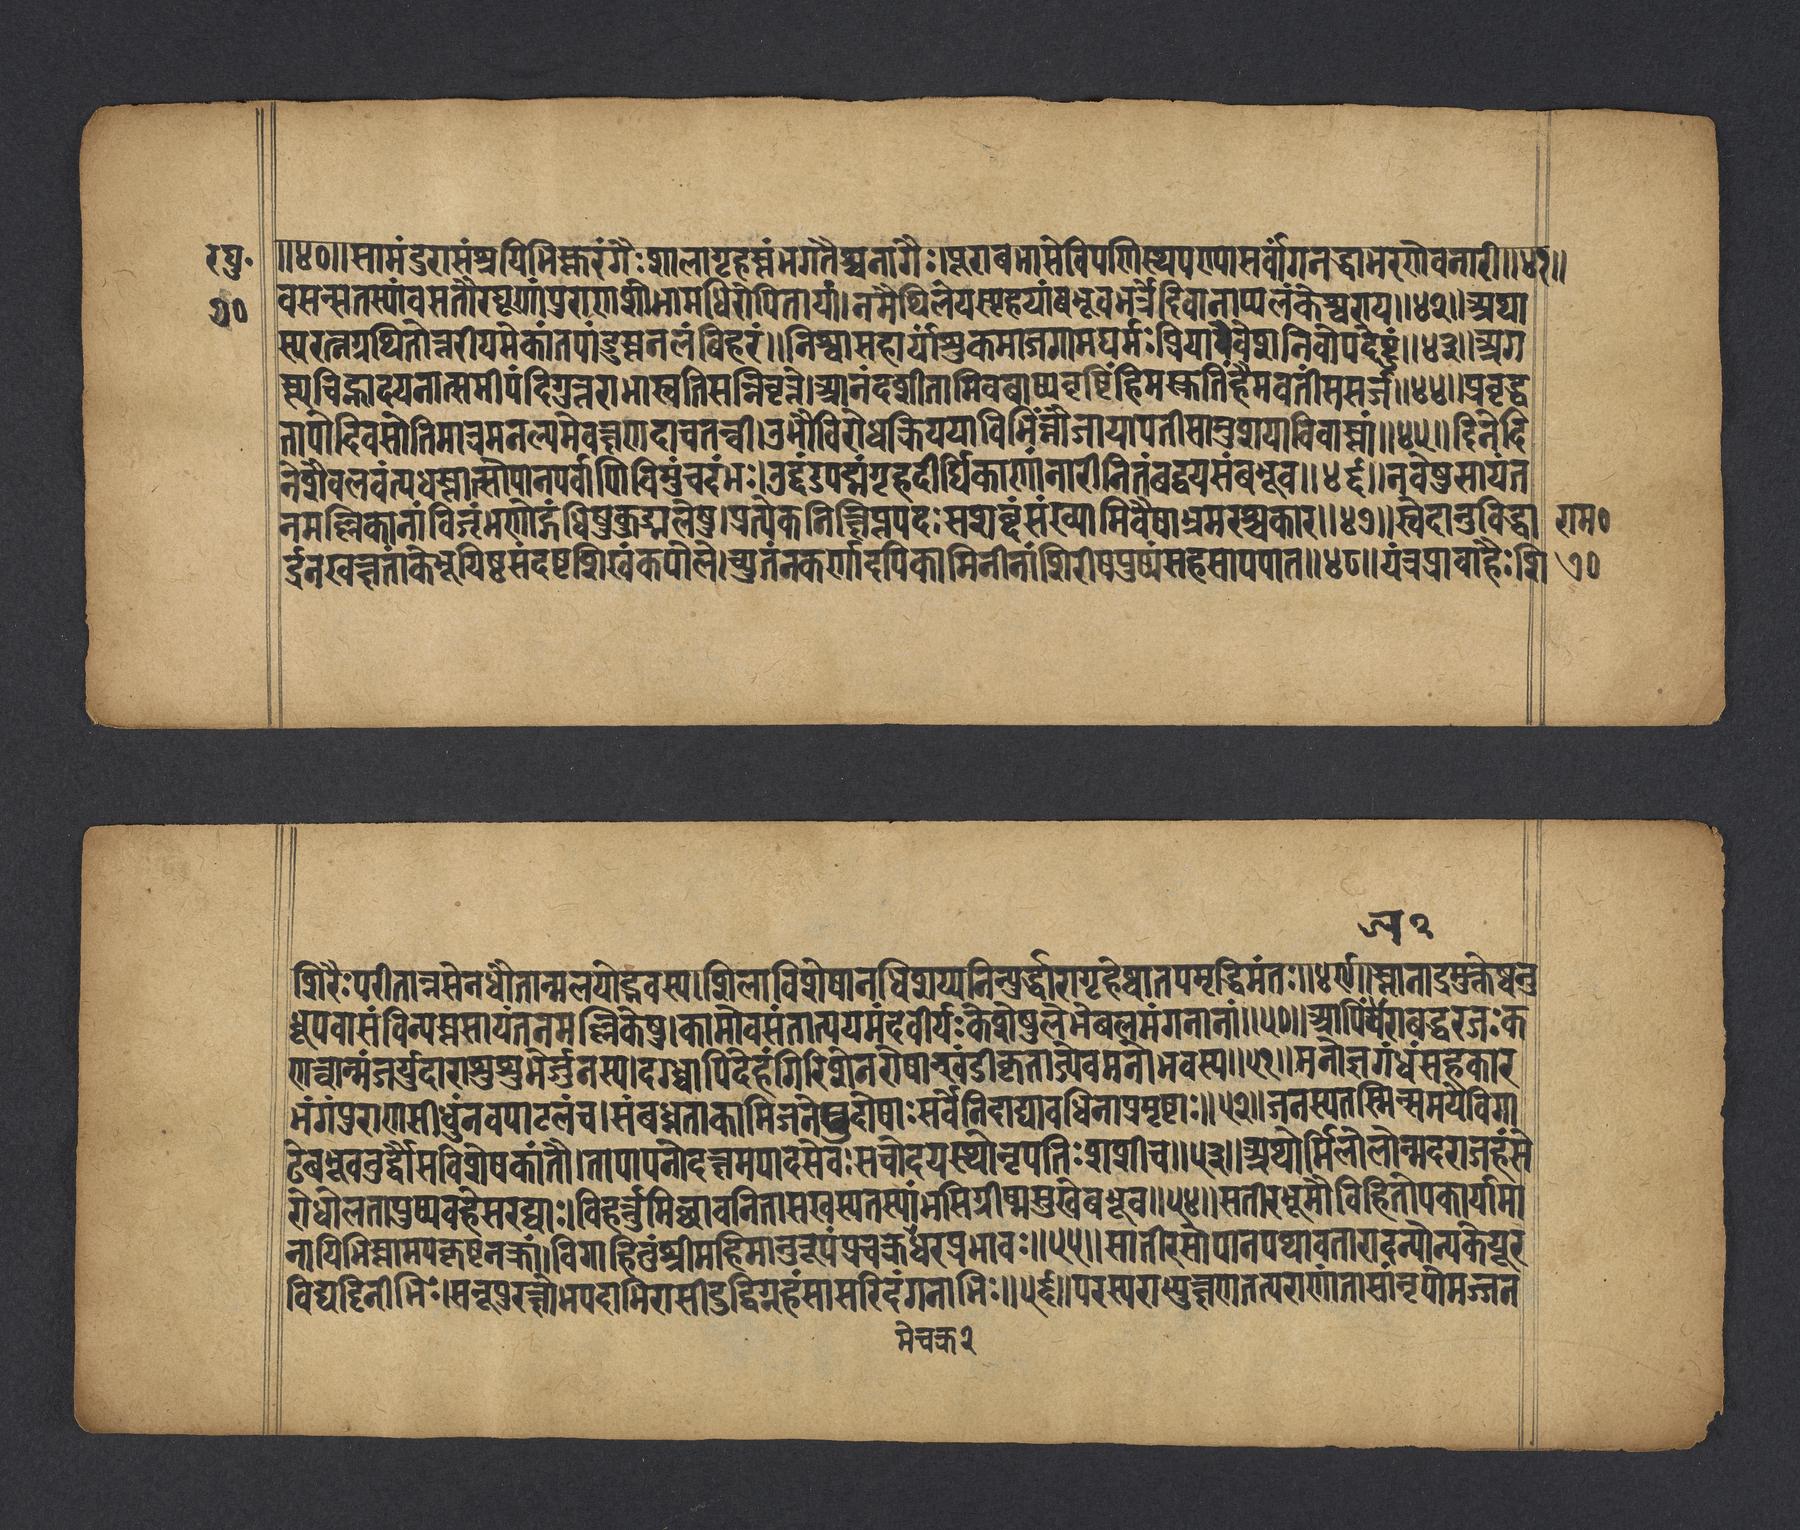 रघु॰
७०
॥४०॥सामंडुरासंश्रयिभिस्तुरंगैःशालागृहस्तंभगतैश्चनागैः।पूराबभासेविपणिस्थपण्यासर्वांगनद्धाभरणेवनारी॥४१॥
वसन्सतस्यांवसतौरघूणांपुराणशोभामधिरोपितायां।नमैथिलेयस्पृहयांबभूवभर्त्रेदिवोनाप्यलकेश्वराय॥४२॥अथा
स्यरत्नग्रथितोत्तरीयमेकांतपांडुस्तनलंविहरं॥निश्वासहार्यांशुकमाजगामघर्मःप्रियावेषमिवोपदेष्टुं॥४३॥अग
स्त्यचिह्नादयनात्समीपंदिगुत्तराभास्वतिसन्निवृत्ते।आनंदशीतामिवबाष्पवृष्टिंहिमस्रुतिंहैमवतींससर्ज॥४४॥प्रवृद्ध
तापोदिवसोतिमात्रमत्यनल्पमेवक्षणदाचतन्वी।उभौविरोधक्रिययाविभिन्नौजायापतीसानुशयाविवास्तां॥४५॥दिनेदि
नेशैवलवंत्यधस्तात्सोपानपर्वाणिविमुंचदंभः।उद्दंडपद्मंगृहदीर्घिकाणांनारीनितंबद्वयसंबभूव॥४६॥नवेषुसायंत
नमल्लिकानांविजृंभणोद्गंधिषुकुड्मलेषु।प्रत्येकनिक्षिप्तपदःसशब्दंसंख्यामिवैषांभ्रमरश्चकार॥४७॥स्वेदानुविद्धा
र्द्रनखक्षतांकेभूयिष्ठसंदष्टशिखंकपोले।च्युतंनकर्णादपिकामिनीनांशिरीषपुष्पंसहसापपात॥४८॥यंत्रप्रवाहैःशि
राम०
७०
अ२
शिरैःपरीतान्रसेनधौतान्मलयोद्भवस्य।शिलाविशेषानधिशय्यनिन्युर्द्धारागृहेष्वातपमृद्धिमंतः॥४९॥स्नानार्द्रमुक्तेष्वनु
धूपवासंविन्यस्तसायंतनमल्लिकेषु।कामोवसंतात्ययमंदवीर्यःकेशेषुलेभेबलमंगनानां॥५०॥आपिंजराबद्धरजःक
णत्वान्मंजर्युदाराशुशुभेर्जुनस्य।दग्ध्वापिदेहंगिरिशेनरोषात्खंडीकृताज्येवमनोभवस्य॥५१॥मनोज्ञगंधंसहकार
भंगंपुराणसीधुंनवपाटलंच।संबध्नताकामिजनेषुदोषाःसर्वेनिदाघावधिनाप्रमृष्टाः॥५२॥जनस्यतस्मिन्समयेविगा
ढेबभूवतुर्द्वौसविशेषकांतौ।तापापनोदक्षमपादसेवःसचोदयस्थोनृपतिःशशीच॥५३॥अथोर्मिलोलोन्मदराजहंसे
रोधोलतापुष्पवहेसरय्वाः।विहर्त्तुमिच्छावनितासखस्यतस्यांभसिग्रीष्मसुखेबभूव॥५४॥सतीरभूमौविहितोपकार्यामा
नायिभिस्तामपकृष्टनक्रां।विगाहितुंश्रीमहिमानुरूपंप्रचक्रमेचक्रधरप्रभावः॥५५॥सातीरसोपानपथावतारादन्योन्यकेयूर
विघट्टिनीभिः।सनूपुरक्षोभपदाभिरासीदुद्विग्नहंसासरिदंगनाभिः॥५६॥परस्पराभ्युक्षणतत्पराणांतासांनृपोमज्जन
मेचक्र२